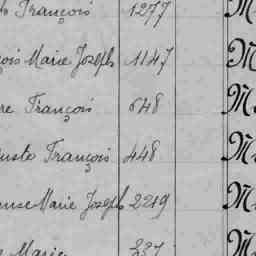 François 1277 M
çois Marie Joseph 1147 M
re François 648 M
uste François 448 M
Marie Joseph 2219 M
Marie 337 M